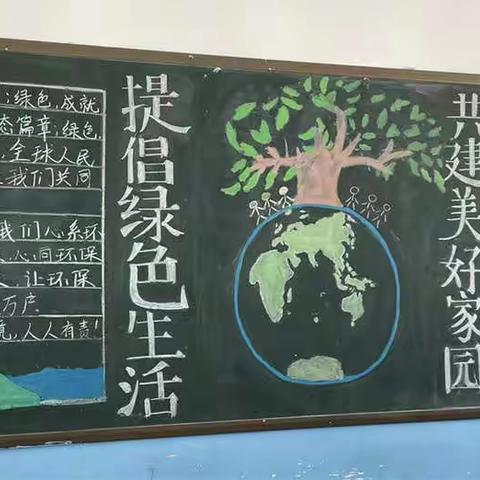 绿色,成就
态篇章;绿色,
全球人民
我们共同
我们心系环
心同环保
让环保
万户
人人有责!
提倡绿色生活
共建美好家园